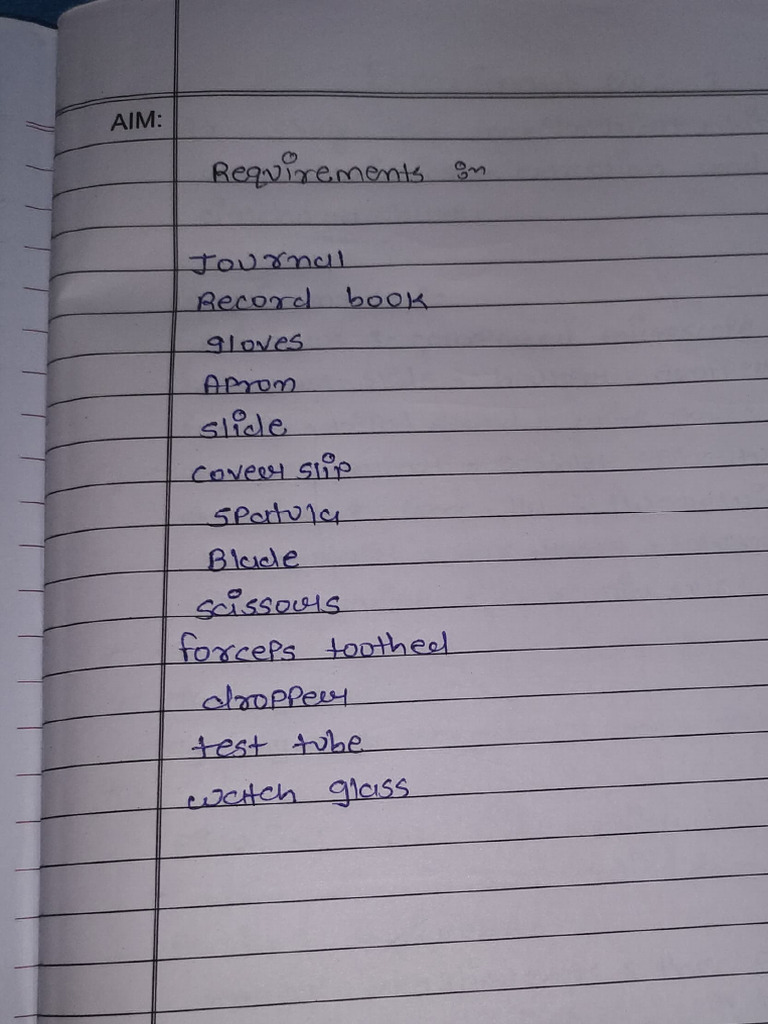 AIM:
Requirements :-
Journal
Record book
gloves
Apron
slide
cover slip
spatula
Blade
scissors
forceps toothed
dropper
test tube
watch glass